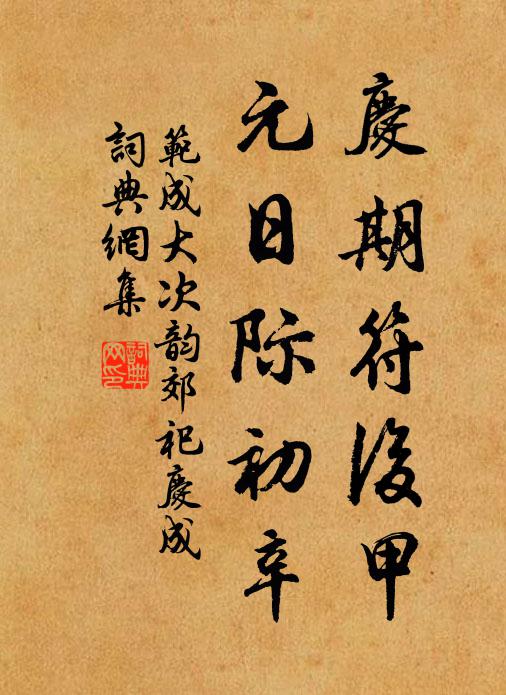 慶期符後甲
元日际初辛
範成大次韵郊祀慶成
詞典網集
詞典网印